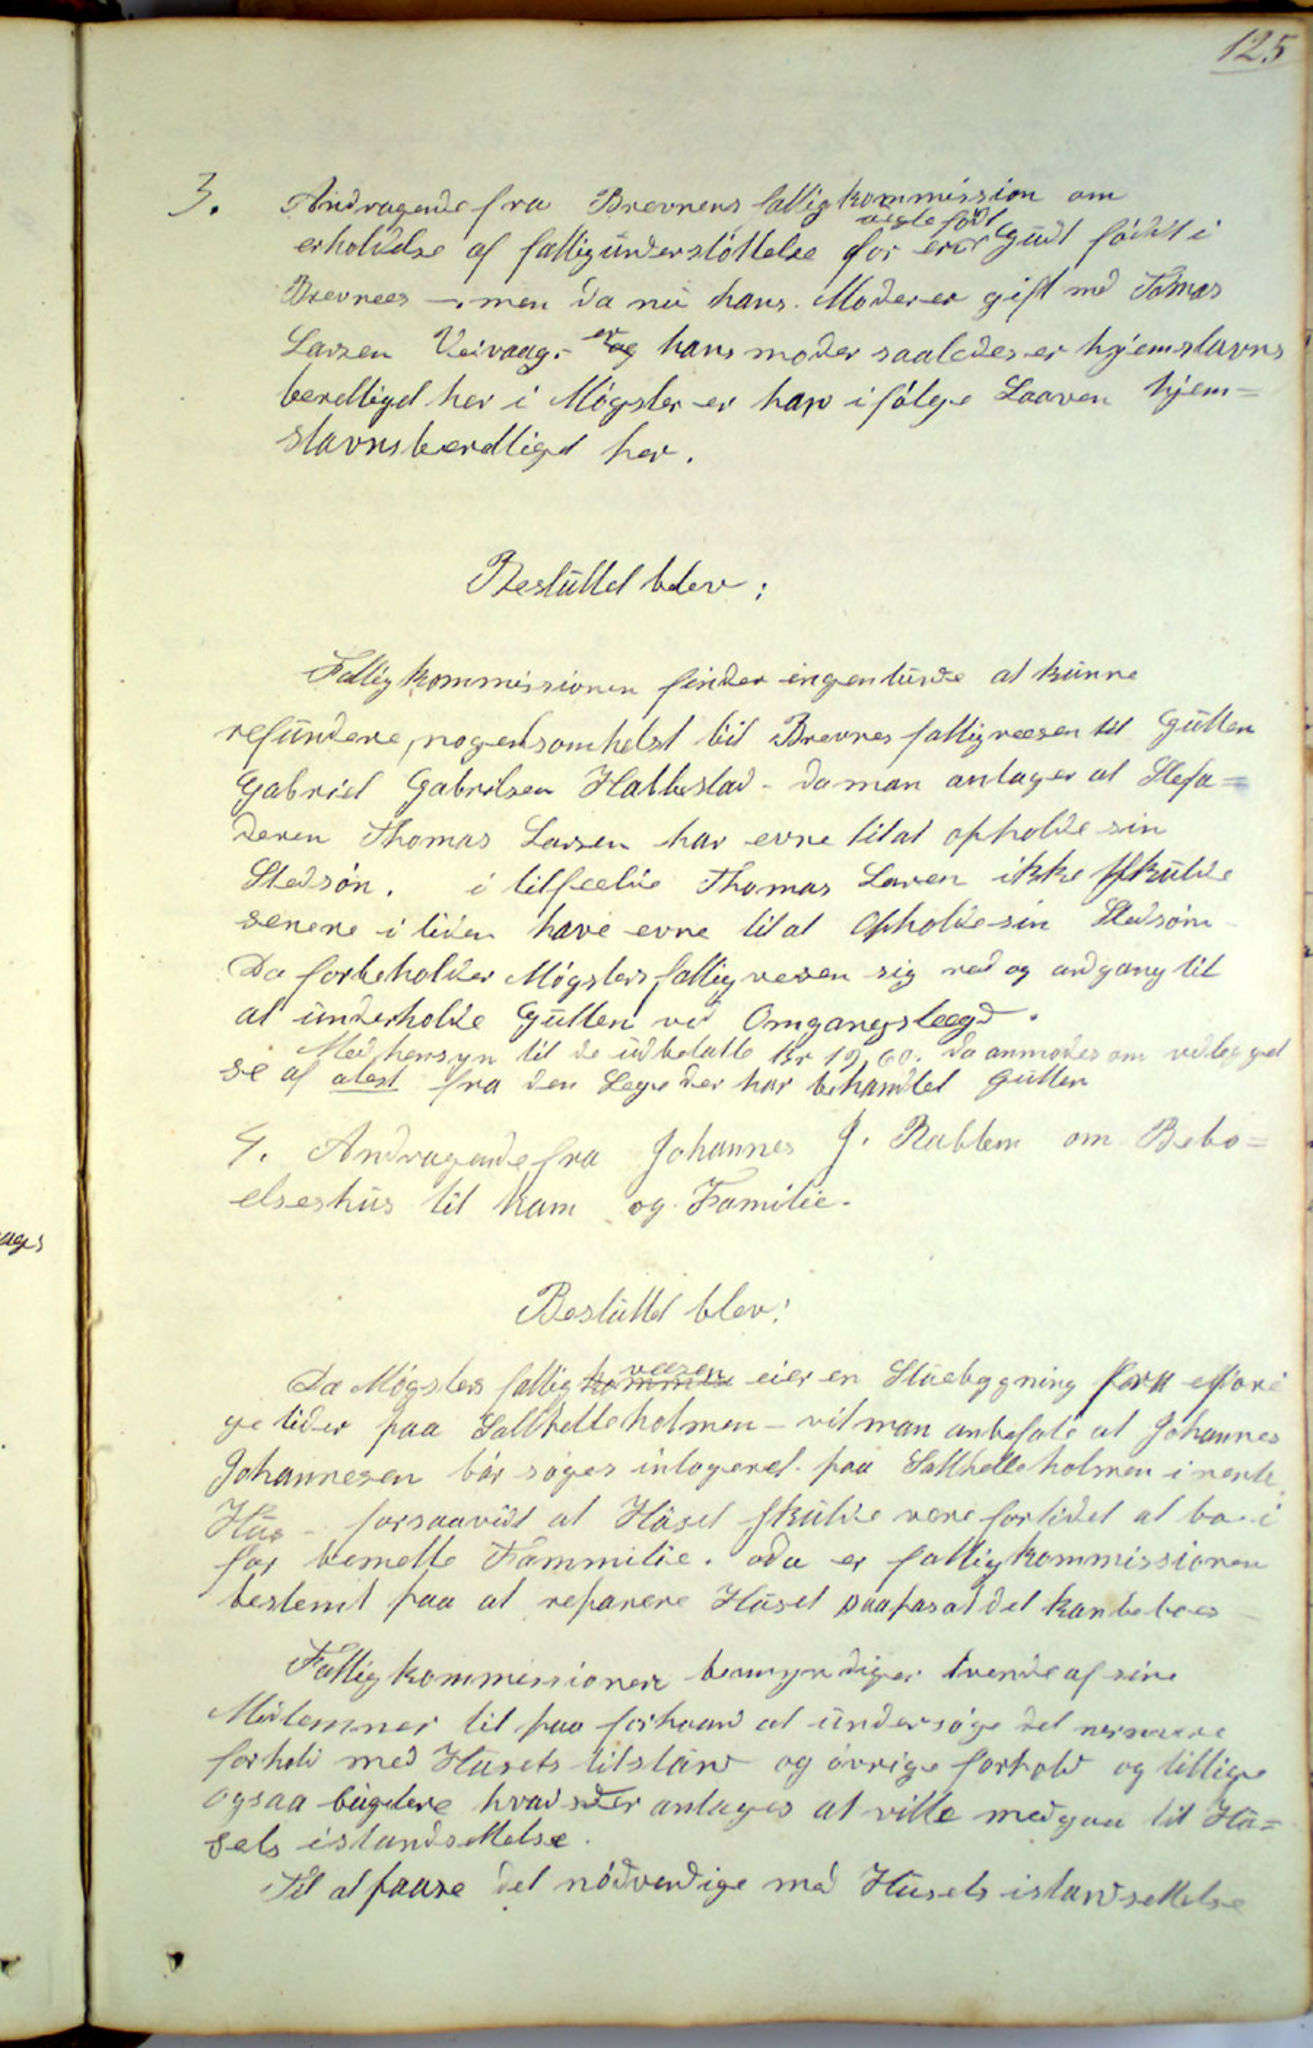 125
3. Andragende fra Brevnens fattigkommission om
erholdelse af fattigünderstöttelse for en Gut födt i
Brevnees – men da nü hans Moder er gift md Tomas
Larsen Veivaag. – er hans moder saaledes er hjemstavns
berettiget her i Møgster er han ifølge Laaven hjem=
stavnsberettiget her.
Besluttet blev:
Fattigkommissionen finder ingenlunde at kunne
refundere, nogensomhelst til Brevnes fattigvæsen til Gutten
Gabriel Gabrelsen Hallestad – da man antager at Stefa=
deren Thomas Larsen har evne til at opholde sin
Stedsön. i tilfælde Thomas Laren ikke skulde
senere i tiden have evne til at Opholde sin Stedsön –
Da forbeholder Møgsters fattigvesen sig rad og adgang til
at underholde Gutten ved Omgangslægd.
Med hensyn til de udbetalte Kr 19,60. da anmodes om vedleggel
se af atest fra den Lege der har behandlet Gutten
4. Andragende fra Johannes J. Rabben om Bebo=
elseshus til ham og Familie.
Besluttet blev:
Da Møgsters fattigvæsen eier en Stuebygning fra
ge tider paa Salthelleholmen – vil man anbefale at Johannes
Johannesen bør søges inlogeret paa Salthelleholmen i nevnte
Hus – forsaavidt at Huset skulde vere forlidet at bo i
for bemelte Fammilie. da er fattigkommissionen
bestemt paa at reparere Huset saapas at det kan beboes –
Fattigkommissionen bemyndiger tvende af sine
Medlemmer til paa forhaand at undersøge det nermere
forhold med Husets tilstand og övrige forhold og tillige
ogsaa bügdere hvad der antages at ville medgaa til Hu=
sets istandsettelse.
Til at faae det nødvendige med Husets istandsettelse
ages